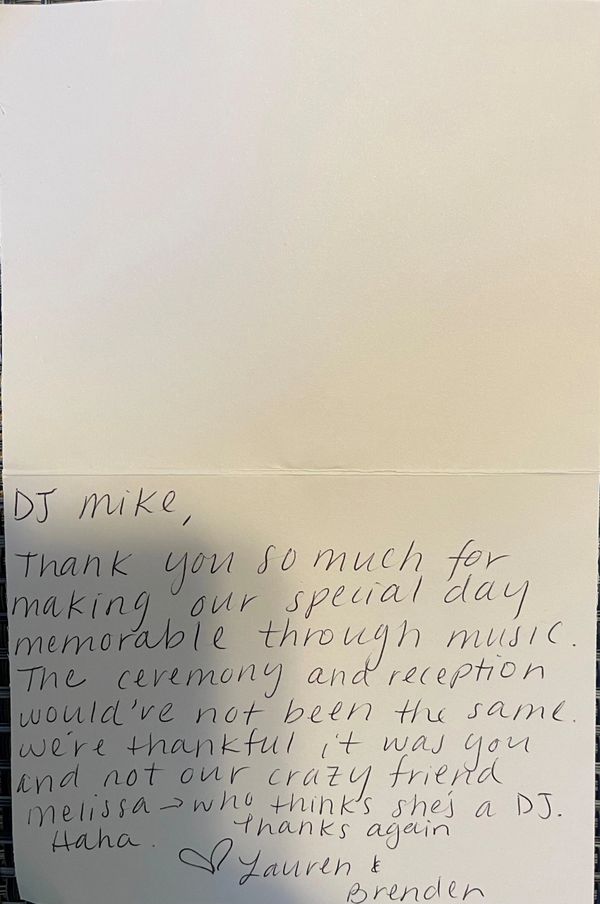 DJ Mike,
Thank you so much for
making our special day
memorable through music.
The ceremony and reception
would've not been the same.
we're thankful it was you
and not our crazy friend
melissa → who thinks she's a DJ.
Haha. Thanks again
♡ Lauren &
Brenden